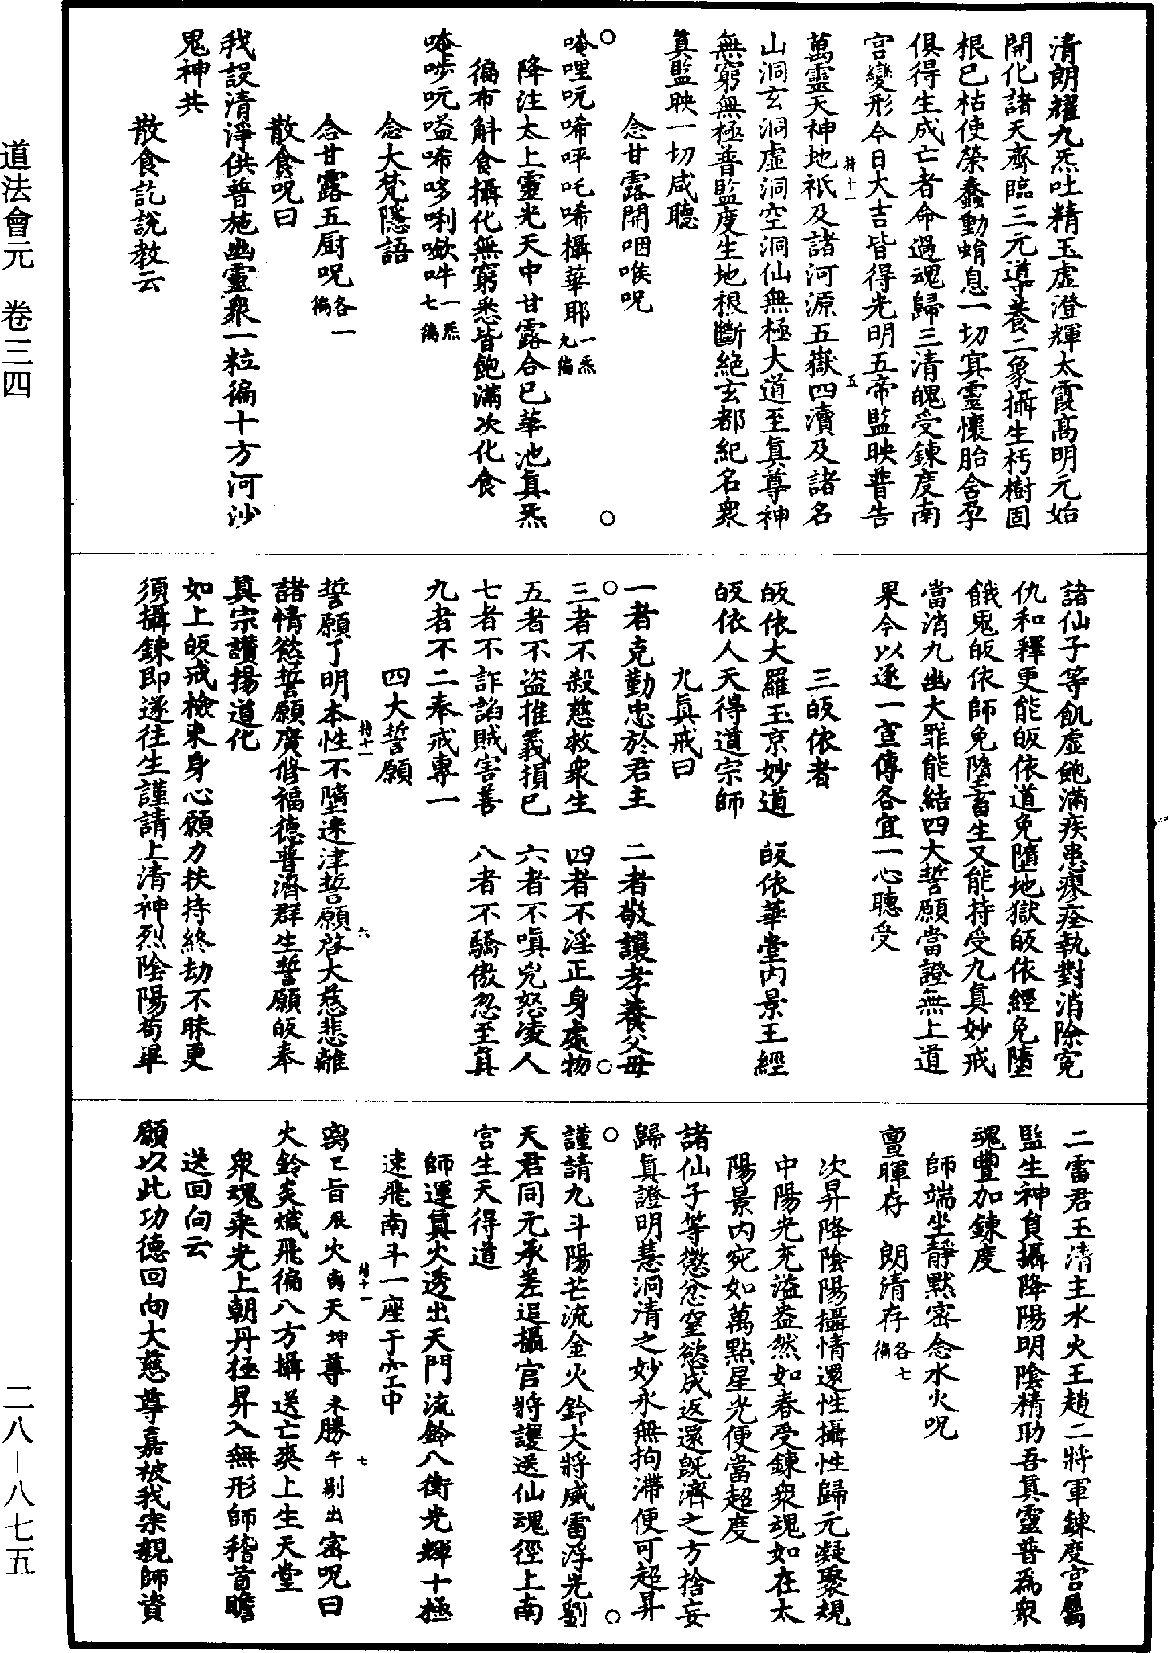 清朗耀九炁吐精玉虛澄輝太霞高明元始
開化諸天齊臨三元導養二象攝生朽樹固
根已枯使榮蠢動蛸息一切㝠靈懷胎含孕
俱得生成亡者命過魂歸三清魄受鍊度南
宮變形今日大吉皆得光明五帝監映普告
持十一
五
萬靈天神地祇及諸河源五嶽四瀆及諸名
山洞玄洞虛洞空洞仙無極大道至真尊神
無窮無極普監度生地根斷絕玄都紀名衆
真監映一切咸聽
念甘露開咽喉呪
○
○
唵哩吭唏呼吒唏攝華耶一炁九徧
降注太上靈光天中甘露合已華池真炁
徧布斛食攝化無窮悉皆飽滿次化食
唵㖇吭嗌唏哆唎㘕吽一炁七徧
念大梵隱語
念甘露五厨呪各一徧
散食呪曰
我設清淨供普施幽靈衆一粒徧十方河沙
鬼神共
散食訖說教云
諸仙子等飢虛飽滿疾患瘳痊執對消除寃
仇和釋更能皈依道免墮地獄皈依經免墮
餓鬼皈依師免墮畜生又能持受九真妙戒
當消九幽大罪能結四大誓願當證無上道
果今以逐一宣傳各宜一心聽受
三皈依者
皈依大羅玉京妙道　皈依華堂內景玉經
皈依人天得道宗師
九真戒曰
一者克勤忠於君主　二者敬讓孝養父母
○
○
三者不殺慈救衆生　四者不淫正身處物
五者不盜推義損已　六者不嗔兇怒凌人
七者不詐諂賊害善　八者不驕傲忽至真
九者不二奉戒專一
四大誓願
誓願了明本性不墮迷津誓願啓大慈悲離
持十一
六
諸情慾誓願廣修福德普濟群生誓願皈奉
真宗讚揚道化
如上皈戒檢束身心願力扶持終劫不昧更
須攝鍊即遂往生謹請上清神烈陰陽苟畢
二雷君玉清主水火王趙二將軍鍊度官屬
監生神負攝降陽明陰精助吾真靈普爲衆
魂疊加鍊度
師端坐靜默密念水火呪
亶暉存　朗清存各七徧
次昇降陰陽攝情還性攝性歸元凝聚規
中陽光充溢盎然如春受鍊衆魂如在太
陽景內宛如萬點星光便當超度
諸仙子等懲忿窒慾成返還旣濟之方捨妄
歸真證明慧洞清之妙永無拘滯便可超昇
○
○
謹請九斗陽芒流金火鈴大將威雷浮光劉
天君同元承差追攝官將護送仙魂徑上南
宮生天得道
師運真火透出天門流鈴八衝光輝十極
速飛南斗一座于空中
离巳旨辰火离天坤尊未勝午剔出密呪曰
持十一
七
火鈴炎熾飛徧八方攝送亡爽上生天堂
衆魂乘光上朝丹極昇入無形師稽首瞻
送回向云
願以此功德回向大慈尊嘉被我宗親師資
道法會元　卷三四
二八—八七五